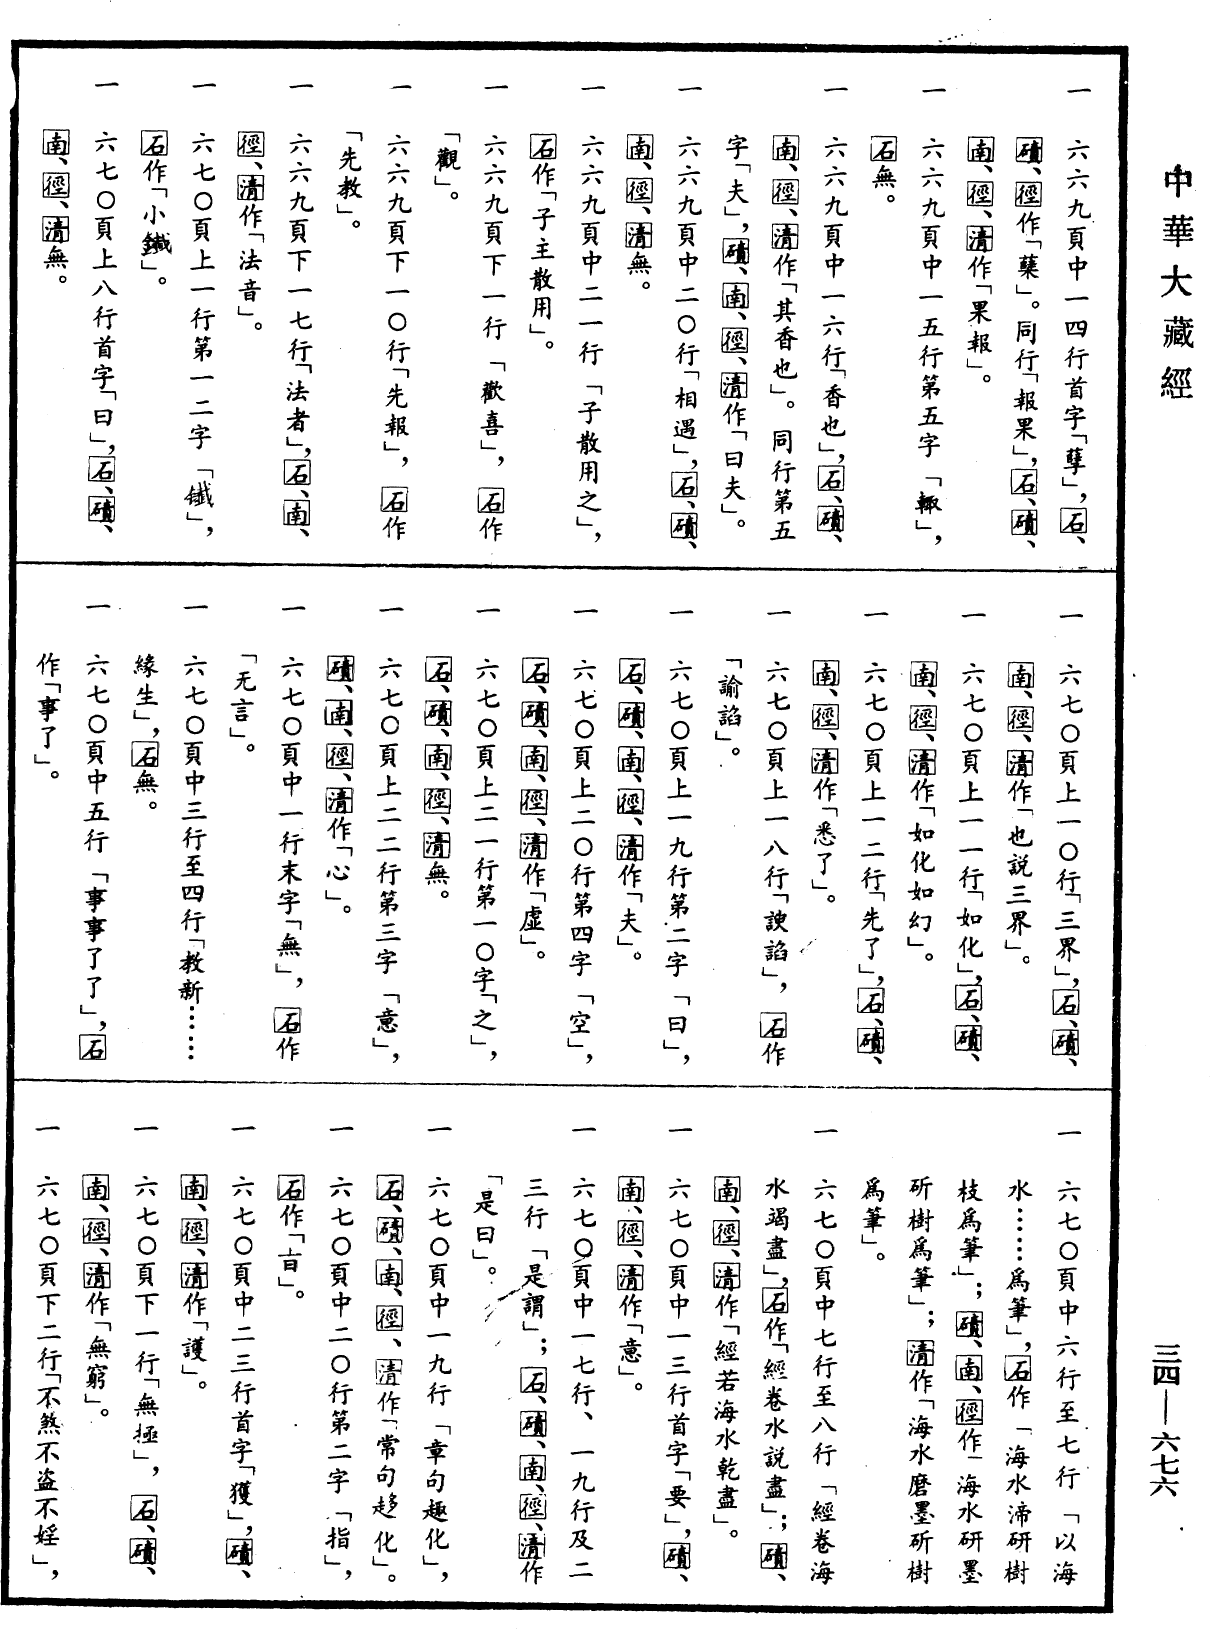 中華大藏經
三四—六七六
一 六六九頁中一四行首字「孽」，石、
磧、徑作「蘖」。同行「報果」，石、磧、
南、徑、清作「果報」。
一 六六九頁中一五行第五字「輙」，
石無。
一 六六九頁中一六行「香也」，石、磧、
南、徑、清作「其香也」。同行第五
字「夫」，磧、南、徑、清作「曰夫」。
一 六六九頁中二〇行「相遇」，石、磧、
南、徑、清無。
一 六六九頁中二一行「子散用之」，
石作「子主散用」。
一 六六九頁下一行「歡喜」，石作
「觀」。
一 六六九頁下一〇行「先報」，石作
「先教」。
一 六六九頁下一七行「法者」，石、南、
徑、清作「法音」。
一 六七〇頁上一行第一二字「鑯」，
石作「小鍼」。
一 六七〇頁上八行首字「曰」，石、磧、
南、徑、清無。
一 六七〇頁上一〇行「三界」，石、磧、
南、徑、清作「也說三界」。
一 六七〇頁上一一行「如化」，石、磧、
南、徑、清作「如化如幻」。
一 六七〇頁上一二行「先了」，石、磧、
南、徑、清作「悉了」。
一 六七〇頁上一八行「諛諂」，石作
「諭諂」。
一 六七〇頁上一九行第二字「曰」，
石、磧、南、徑、清作「夫」。
一 六七〇頁上二〇行第四字「空」，
石、磧、南、徑、清作「虛」。
一 六七〇頁上二一行第一〇字「之」，
石、磧、南、徑、清無。
一 六七〇頁上二二行第三字「意」，
磧、南、徑、清作「心」。
一 六七〇頁中一行末字「無」，石作
「无言」。
一 六七〇頁中三行至四行「教新……
緣生」，石無。
一 六七〇頁中五行「事事了了」，石
作「事了」。
一 六七〇頁中六行至七行「以海
水……爲筆」，石作「海水渧研樹
枝爲筆」；磧、南、徑作「海水研墨
斫樹爲筆」；清作「海水磨墨斫樹
爲筆」。
一 六七〇頁中七行至八行「經卷海
水竭盡」，石作「經卷水說盡」；磧、
南、徑、清作「經若海水乾盡」。
一 六七〇頁中一三行首字「要」，磧、
南、徑、清作「意」。
一 六七〇頁中一七行、一九行及二
三行「是謂」；石、磧、南、徑、清作
「是曰」。
一 六七〇頁中一九行「章句趣化」，
石、磧、南、徑、清作「常句趍化」。
一 六七〇頁中二〇行第二字「指」，
石作「盲」。
一 六七〇頁中二三行首字「獲」，磧、
南、徑、清作「護」。
一 六七〇頁下一行「無極」，石、磧、
南、徑、清作「無窮」。
一 六七〇頁下二行「不煞不盜不婬」，